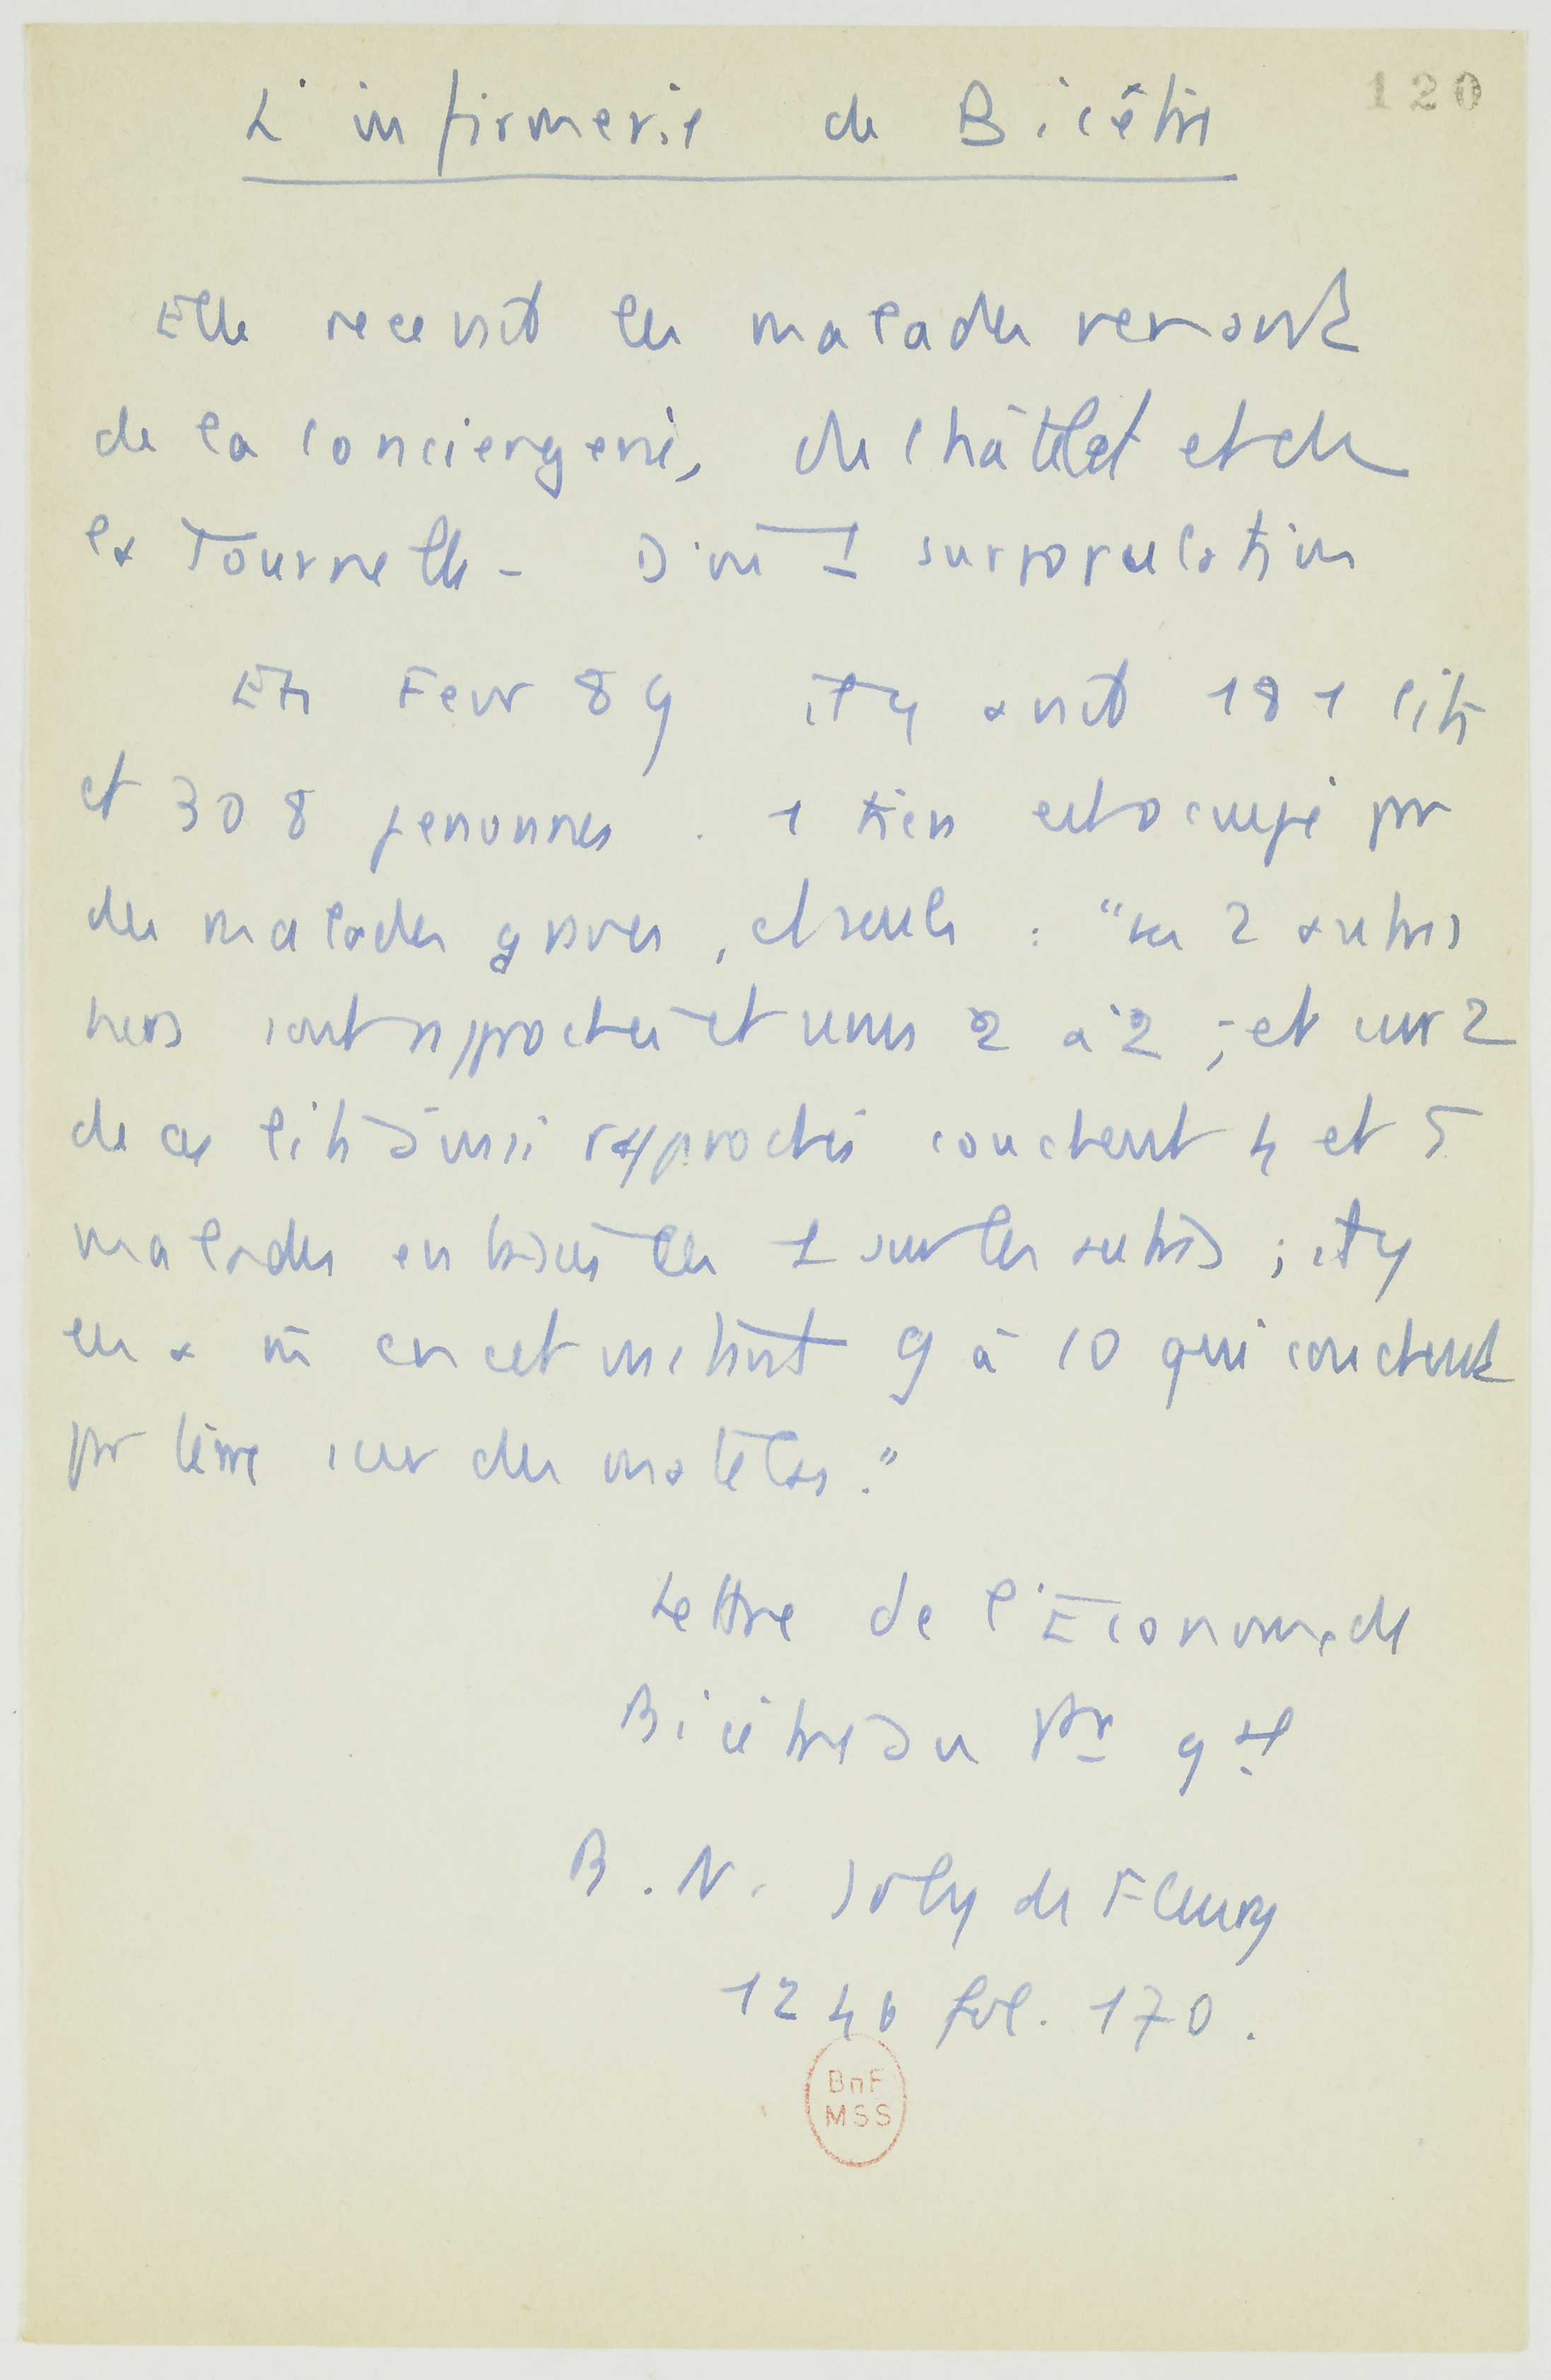 120
L'infirmerie de Bicêtre
Elle recevait les malades venant
de la Conciergerie, du Châtelet et de
la Tournelle - D'où surpopulation
En Fevr 89 il y avait 181 lits
et 308 personnes. 1 tiers est occupé par
des malades graves, et seuls : "les 2 autres
tiers sont rapprochés et unis 2 à 2 ; et sur 2
de ces lits ainsi rapprochés couchent 4 et 5
malades entassés les 1 sur les autres ; il y
en a m̄ en cet instant 9 à 10 qui couchent
par terre sur des matelas."
Lettre de l'Econome de
Bicêtre au Pr gal
B.N. Joly de Fleury
1246 fol. 170.
BnF
MSS